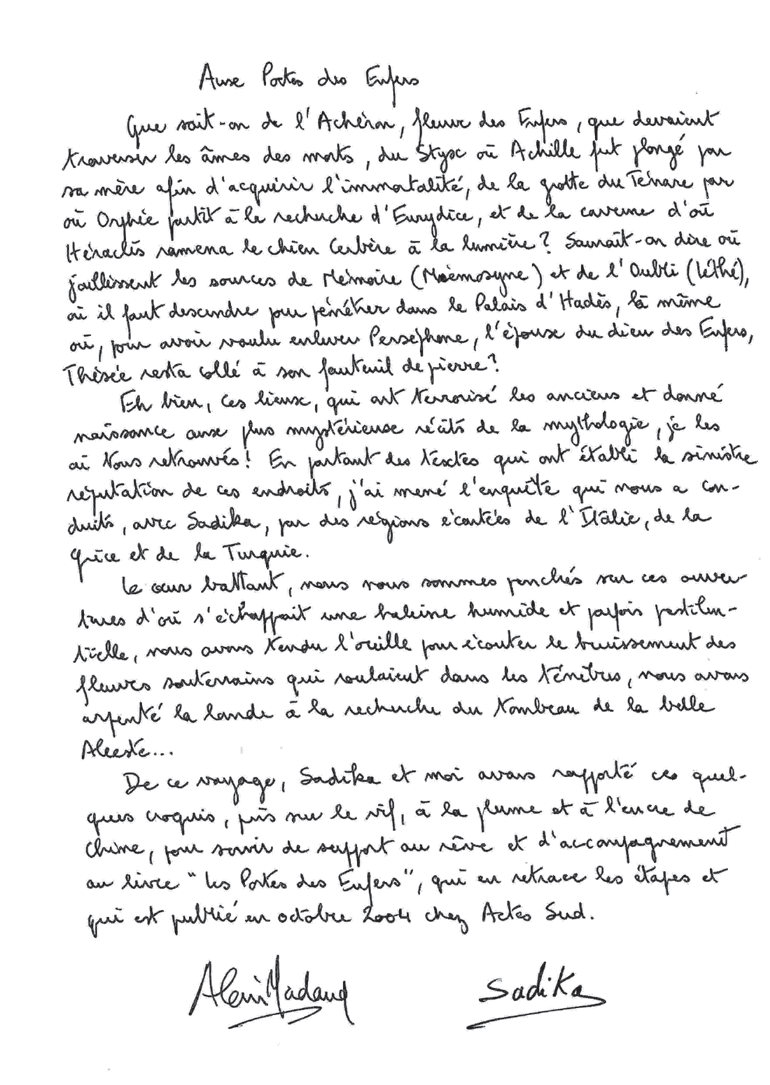 Aux Portes des Enfers
Que sait-on de l'Achéron, fleuve des Enfers, que devaient
traverser les âmes des morts, du Styx où Achille fut plongé par
sa mère afin d'acquérir l'immortalité, de la grotte du Ténare par
où Orphée partit à la recherche d'Eurydice, et de la caverne d'où
Héraclès ramena le chien Cerbère à la lumière ? Saurait-on dire où
jaillissent les sources de Mémoire (Mnémosyne) et de l'Oubli (Léthé),
où il faut descendre pour pénétrer dans le Palais d'Hadès, là même
où, pour avoir voulu enlever Perséphone, l'épouse du dieu des Enfers,
Thésée resta collé à son fauteuil de pierre ?
Eh bien, ces lieux, qui ont terrorisé les anciens et donné
naissance aux plus mystérieux récits de la mythologie, je les
ai tous retrouvés ! En partant des textes qui ont établi la sinistre
réputation de ces endroits, j'ai mené l'enquête qui nous a con-
duits, avec Sadika, par des régions écartées de l'Italie, de la
Grèce et de la Turquie.
Le cœur battant, nous nous sommes penchés sur ces ouver-
tures d'où s'échappait une haleine humide et parfois pestilen-
tielle, nous avons tendu l'oreille pour écouter le bruissement des
fleuves souterrains qui roulaient dans les ténèbres, nous avons
arpenté la lande à la recherche du tombeau de la belle
Alceste...
De ce voyage, Sadika et moi avons rapporté ces quel-
ques croquis, pris sur le vif, à la plume et à l'encre de
Chine, pour servir de support au rêve et d'accompagnement
au livre "Les Portes des Enfers", qui en retrace les étapes et
qui est publié en octobre 2004 chez Actes Sud.
Alain Nadaud Sadika